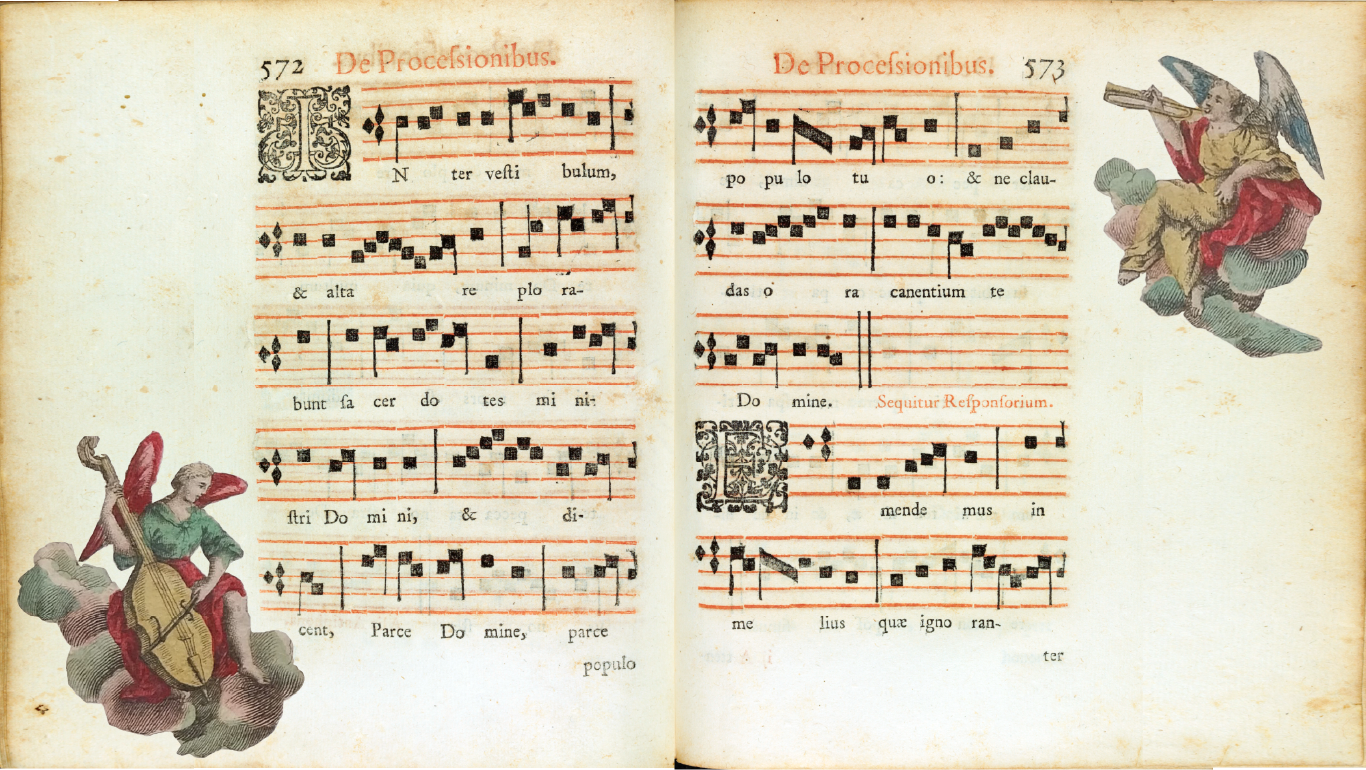 572 De Proceſsionibus.
IN ter veſti bulum,
& alta re plo ra-
bunt ſa cer do tes mi ni-
ſtri Do mi ni, & di-
cent, Parce Do mine, parce
populo
De Proceſsionibus. 573
po pu lo tu o: & ne clau-
das o ra canentium te
Do mine. Sequitur Reſponſorium.
E mende mus in
me lius quæ igno ran-
ter